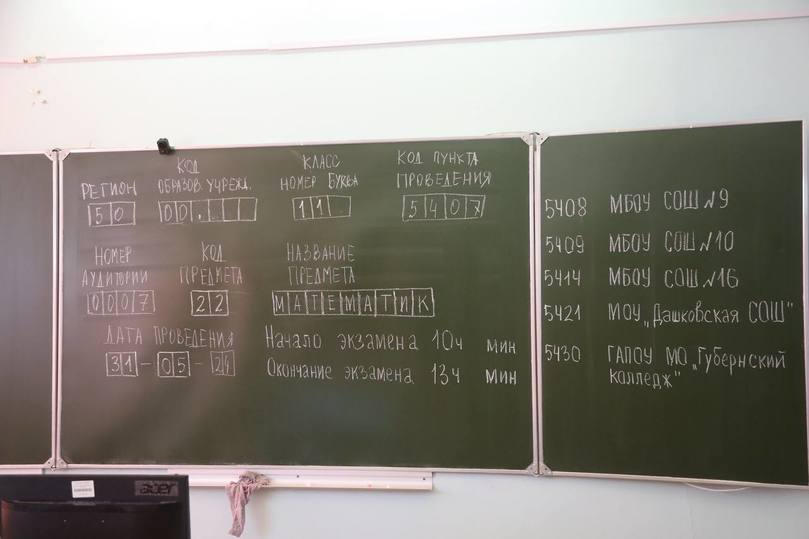 КОД
РЕГИОН ОБРАЗОВ. УЧРЕЖД.
КЛАСС
НОМЕР БУКВА
КОД ПУНКТА
ПРОВЕДЕНИЯ
50 00. 11 5407
НОМЕР
АУДИТОРИИ
КОД
ПРЕДМЕТА
НАЗВАНИЕ
ПРЕДМЕТА
0007 22 МАТЕМАТИК
ДАТА ПРОВЕДЕНИЯ
31-05-24
Начало экзамена 10ч мин
Окончание экзамена 13ч мин
5408 МБОУ СОШ №9
5409 МБОУ СОШ №10
5414 МБОУ СОШ №16
5421 МОУ „Дашковская СОШ"
5430 ГАПОУ МО „Губернский
колледж"